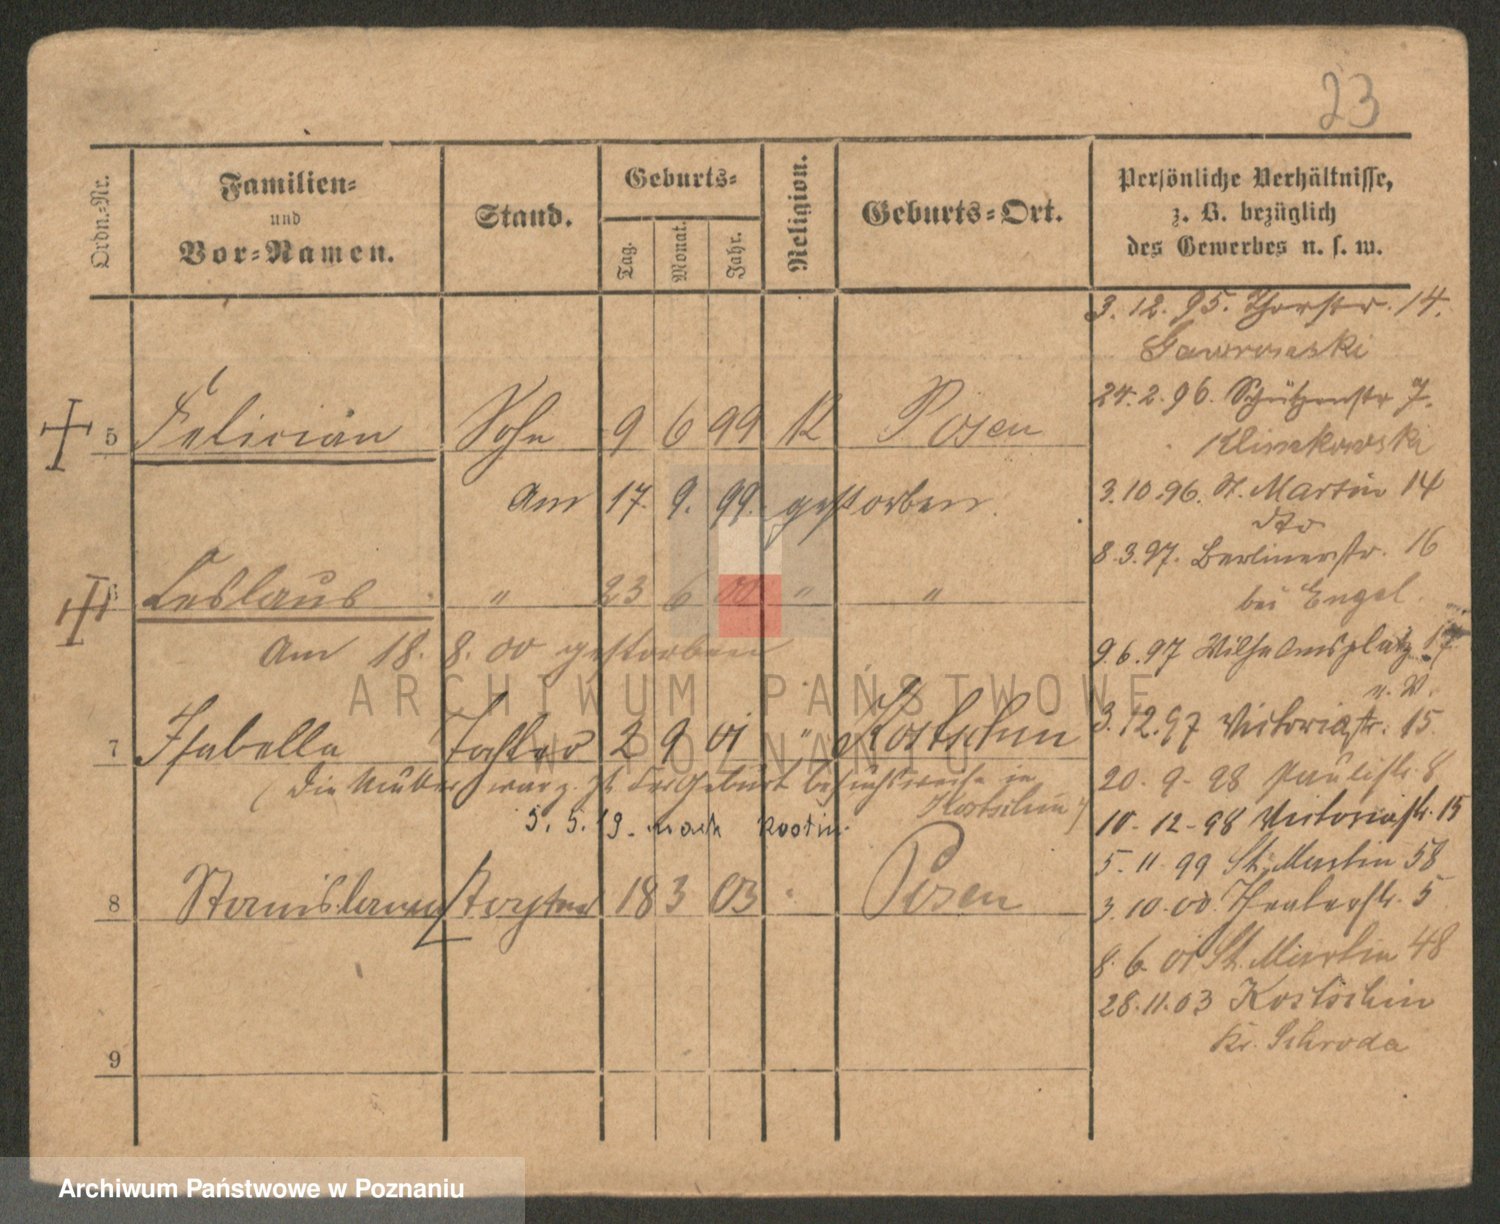 23
Ordn.-Nr.
Familien-
und
Vor-Namen.
Stand.
Geburts-
Tag.
Monat.
Jahr.
Religion.
Geburts-Ort.
Persönliche Verhältnisse,
z. B. bezüglich
des Gewerbes u. s. w.
5 Felician Sohn 9 6 99 K Posen
Am 17. 9. 99. gestorben.
6 Ceslaus " 23 6 00 " "
Am 18. 8. 00 gestorben
7 Isabella Tochter 2 9 01 " Kostschin
(Die Mutter war z. Zt. der Geburt besuchsweise in
Kostschin)
5. 5. 19. nach
8 Stanislaus 18 3 03 Posen
9
3. 12. 95. Thorstr. 14.
Gawronski
24. 2. 96. Schützenstr 7.
Klimkowski
3. 10. 96. St. Martin 14
dto
8. 3. 97. Berlinerstr. 16
bei Engel.
9. 6. 97 Wilhelmsplatz 17
3. 12. 97 Victoriastr. 15
20. 9. 98 Paulistr. 8
10. 12. 98 Victoriastr. 15
5. 11. 99 St. Martin 58
3. 10. 00. Theaterstr. 5
8. 6. 01 St. Martin 48
28. 11. 03 Kostschin
Kr. Schroda
ARCHIWUM PAŃSTWOWE
W POZNANIU
Archiwum Państwowe w Poznaniu